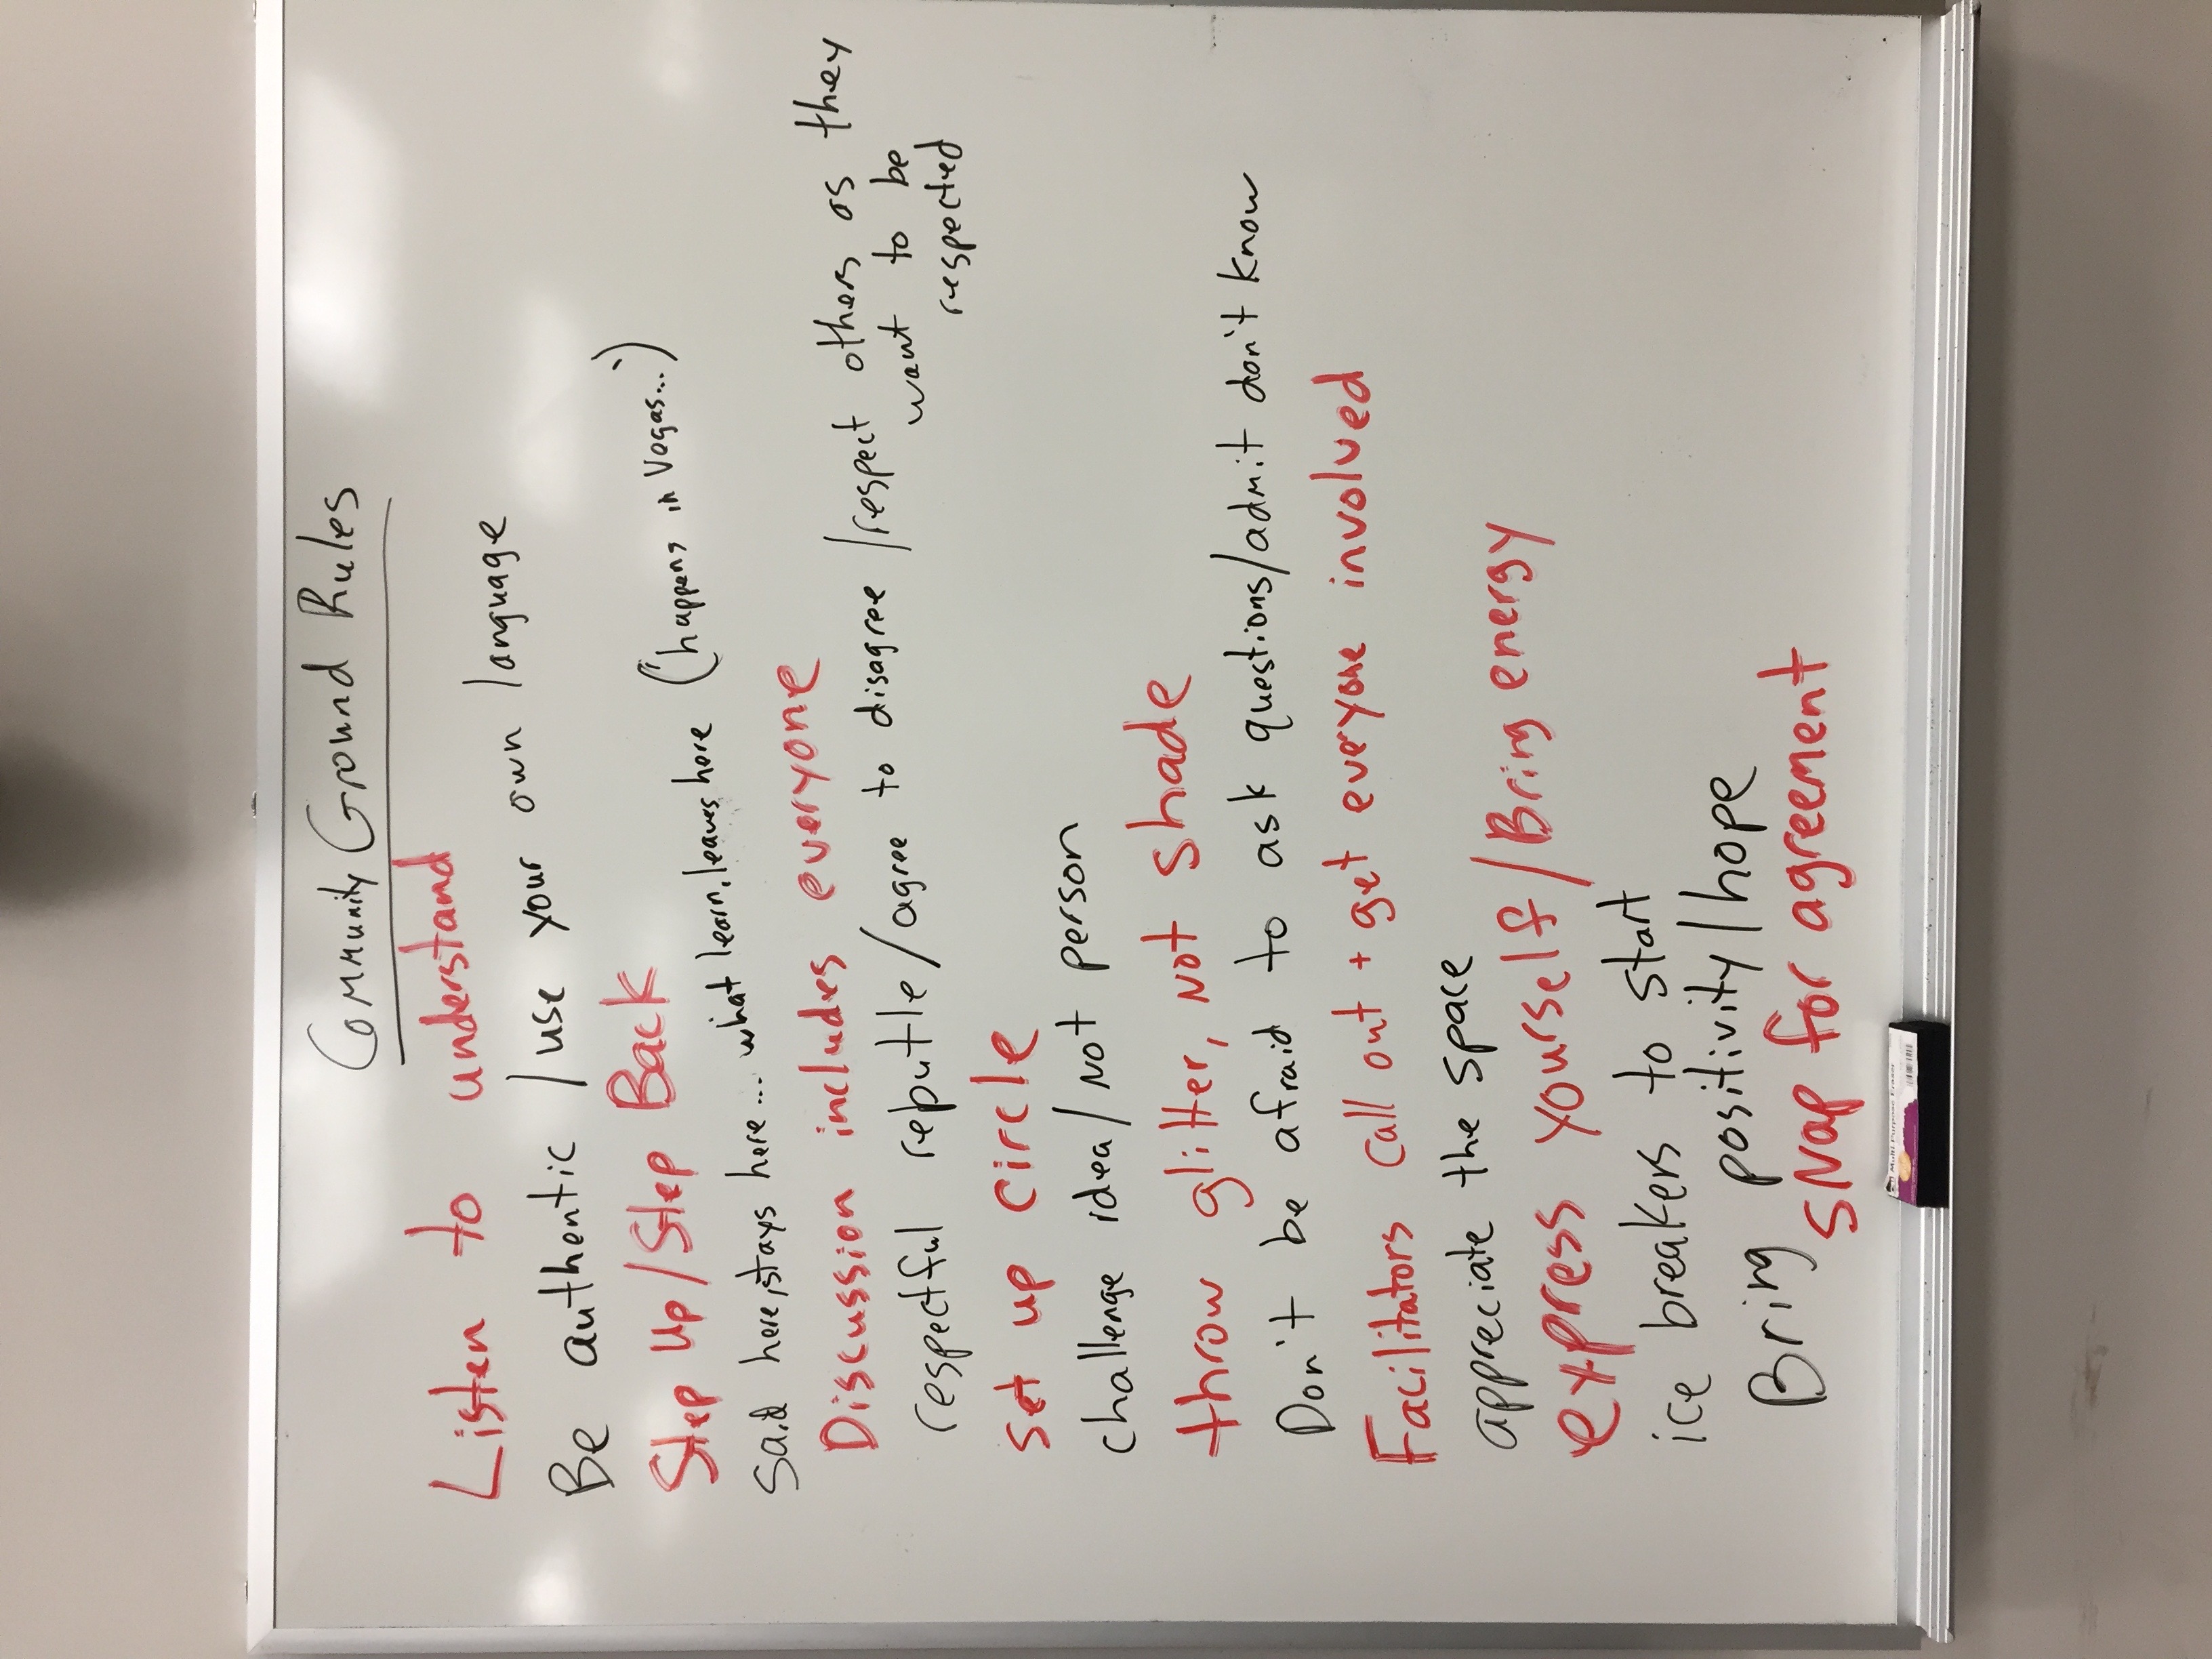 Community Ground Rules
Listen to understand
Be authentic / use your own language
Step Up/Step Back
Said here, stays here... what learn, leaves here ('happens in Vegas...')
Discussion includes everyone
respectful rebutle/agree to disagree /respect others as they
want to be
respected
set up circle
challenge idea/Not person
throw glitter, Not shade
Don't be afraid to ask questions/admit don't know
Facilitators call out + get everyone involved
appreciate the space
express yourself/Bring energy
ice breakers to start
Bring positivity/hope
sNap for agreement
Multi-Purpose Eraser